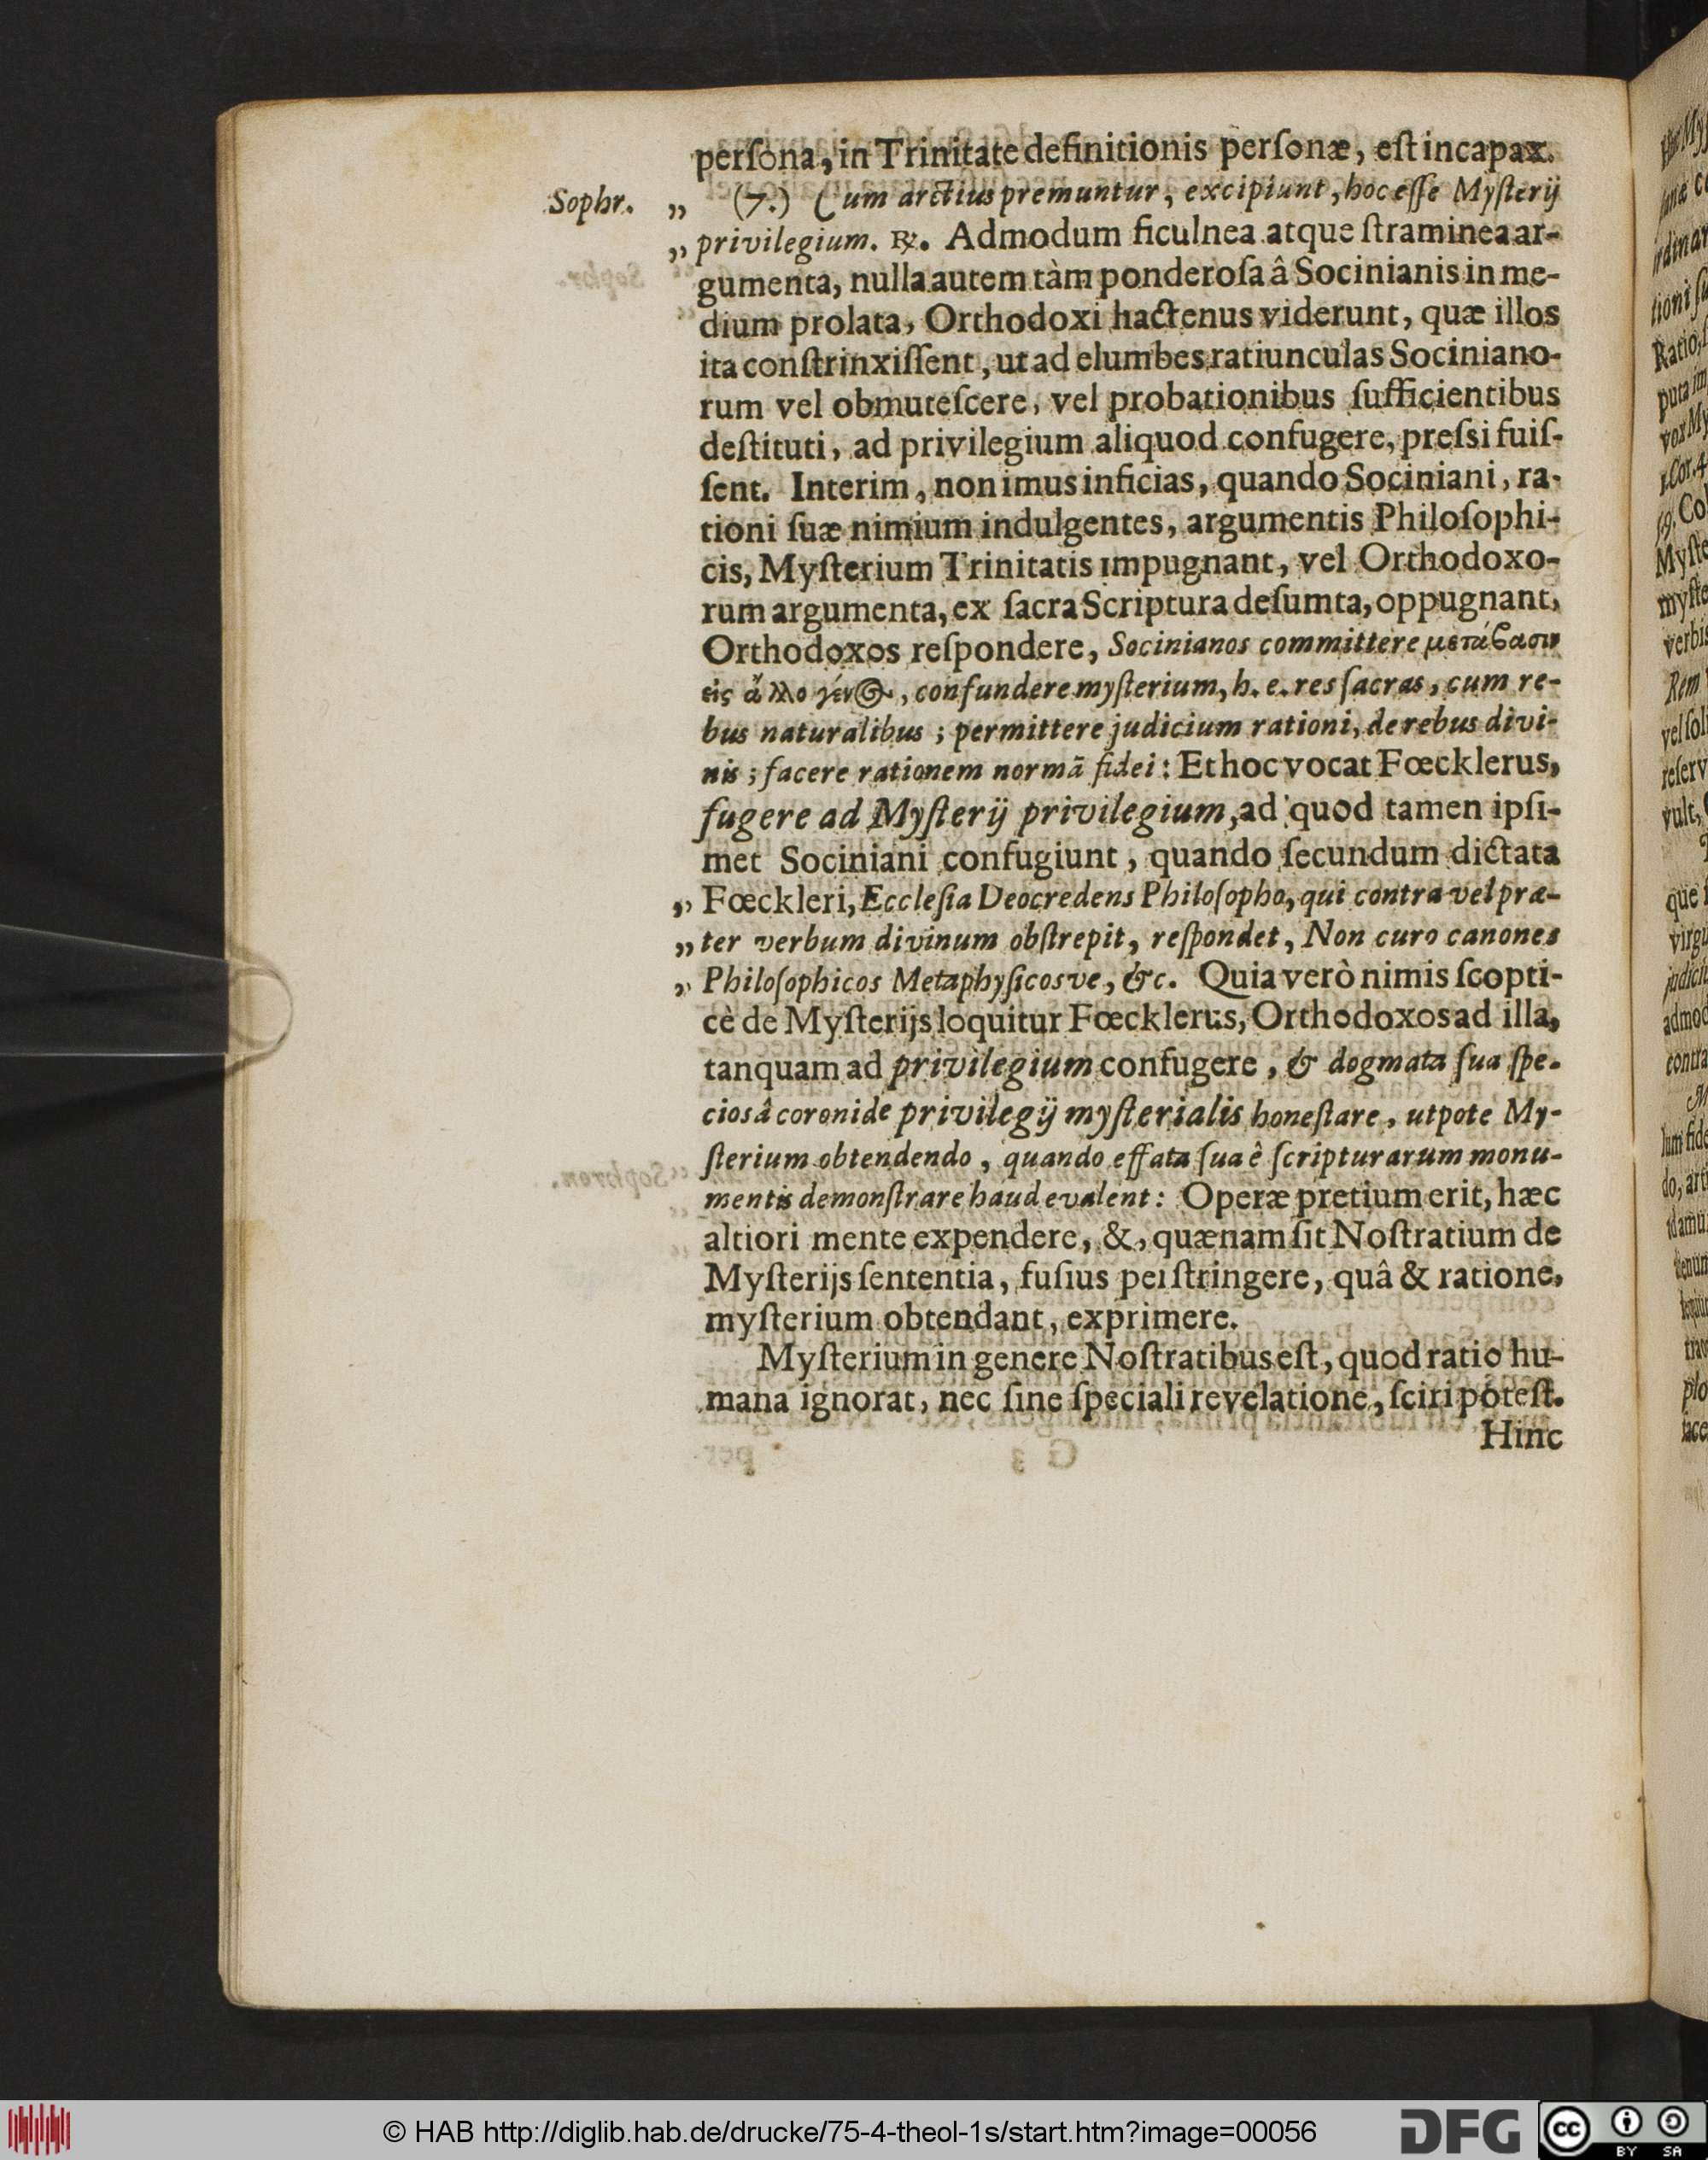 perſona, in Trinitate definitionis perſonæ, eſt incapax.
Sophr. „ (7.) Cum arctius premuntur, excipiunt, hoc eſſe Myſterij
„ privilegium. ℞. Admodum ficulnea atque ſtraminea ar-
gumenta, nulla autem tàm ponderoſa â Socinianis in me-
dium prolata, Orthodoxi hactenus viderunt, quæ illos
ita conſtrinxiſſent, ut ad elumbes ratiunculas Sociniano-
rum vel obmuteſcere, vel probationibus ſufficientibus
deſtituti, ad privilegium aliquod confugere, preſsi fuiſ-
ſent. Interim, non imus inficias, quando Sociniani, ra-
tioni ſuæ nimium indulgentes, argumentis Philoſophi-
cis, Myſterium Trinitatis impugnant, vel Orthodoxo-
rum argumenta, ex ſacra Scriptura deſumta, oppugnant,
Orthodoxos reſpondere, Socinianos committere μετάϐασιν
εἰς ἄλλο γένος, confundere myſterium, h. e. res ſacras, cum re-
bus naturalibus; permittere judicium rationi, de rebus divi-
nis; facere rationem normã fidei: Et hoc vocat Fœcklerus,
fugere ad Myſterij privilegium, ad quod tamen ipſi-
met Sociniani confugiunt, quando ſecundum dictata
„ Fœckleri, Eccleſia Deo credens Philoſopho, qui contra vel præ-
„ ter verbum divinum obſtrepit, reſpondet, Non curo canones
„ Philoſophicos Metaphyſicosve, &c. Quia verò nimis ſcopti-
cè de Myſterijs loquitur Fœcklerus, Orthodoxos ad illa,
tanquam ad privilegium confugere, & dogmata ſua ſpe-
ciosâ coronide privilegij myſterialis honeſtare, utpote My-
ſterium obtendendo, quando effata ſua ê ſcripturarum monu-
mentis demonſtrare haud evalent: Operæ pretium erit, hæc
altiori mente expendere, &, quænam ſit Noſtratium de
Myſterijs ſententia, fuſius perſtringere, quâ & ratione,
myſterium obtendant, exprimere.
Myſterium in genere Noſtratibus eſt, quod ratio hu-
mana ignorat, nec ſine ſpeciali revelatione, ſciri poteſt.
Hinc
© HAB http://diglib.hab.de/drucke/75-4-theol-1s/start.htm?image=00056
DFG
cc BY SA